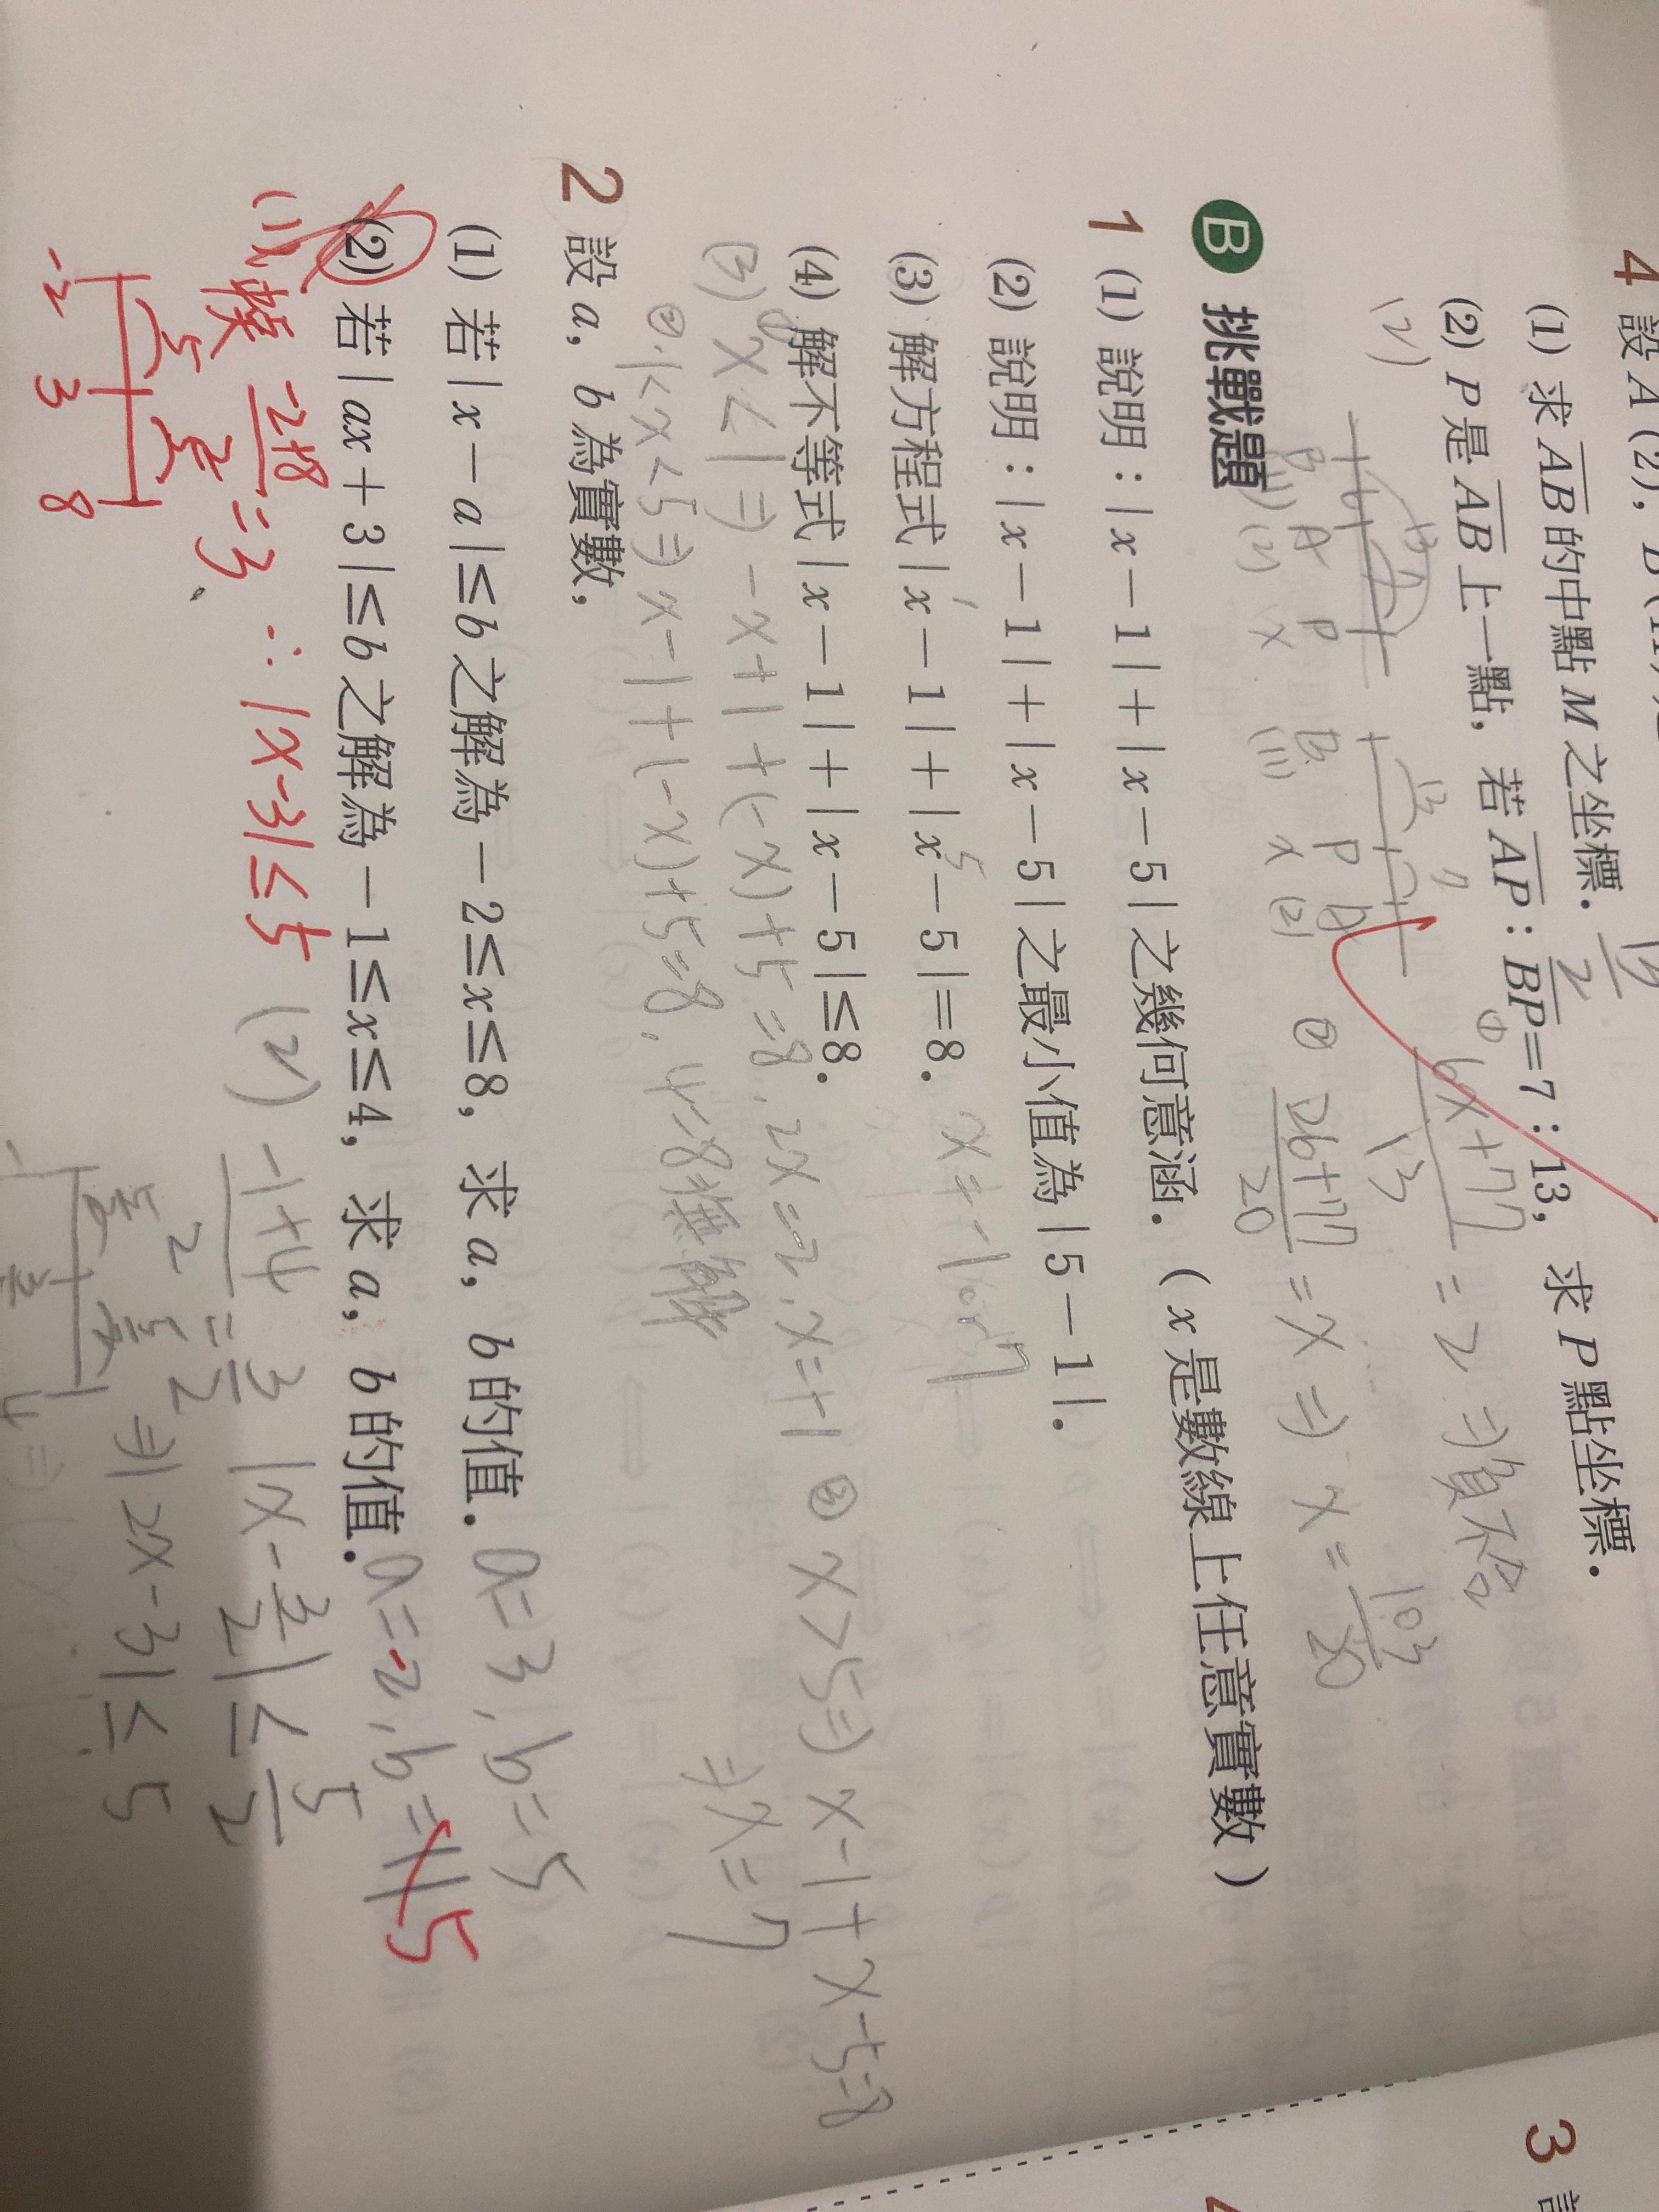 4 設 A(2), B(11)
(1) 求 AB 的中點 M 之坐標. 13/2
(2) P 是 AB 上一點, 若 AP : BP = 7 : 13, 求 P 點坐標.
(2)
13
7
① 6x+77/13 = 2 ⇒ 負不合
B A P
B P A
(1) (2) x
(1) x (2)
② 26+77/20 = x ⇒ x = 103/20
B 挑戰題
1 (1) 說明：|x－1|＋|x－5| 之幾何意涵.（x 是數線上任意實數）
(2) 說明：|x－1|＋|x－5| 之最小值為 |5－1|.
(3) 解方程式 |x－1|＋|x－5|＝8. x=-1 or 7
(4) 解不等式 |x－1|＋|x－5|≤8.
(3) ① x<1 ⇒ -x+1+(-x)+5=8, 2x=-2, x=-1 ③ x>5 ⇒ x-1+x-5=8
② 1<x<5 ⇒ x-1+(-x)+5=8, 4>8 無解 ⇒ x=7
2 設 a, b 為實數,
(1) 若 |x－a|≤b 之解為 －2≤x≤8, 求 a, b 的值. a=3, b=5
(2) 若 |ax＋3|≤b 之解為 －1≤x≤4, 求 a, b 的值. a=-2, b= 5
(1) -2+8/2 = 3 ∴ |x-3|≤5 (2) -1+4/2 = 3/2 |x-3/2| ≤ 5/2
5 5
-2 3 8
⇒ |2x-3| ≤ 5
-1 4
3